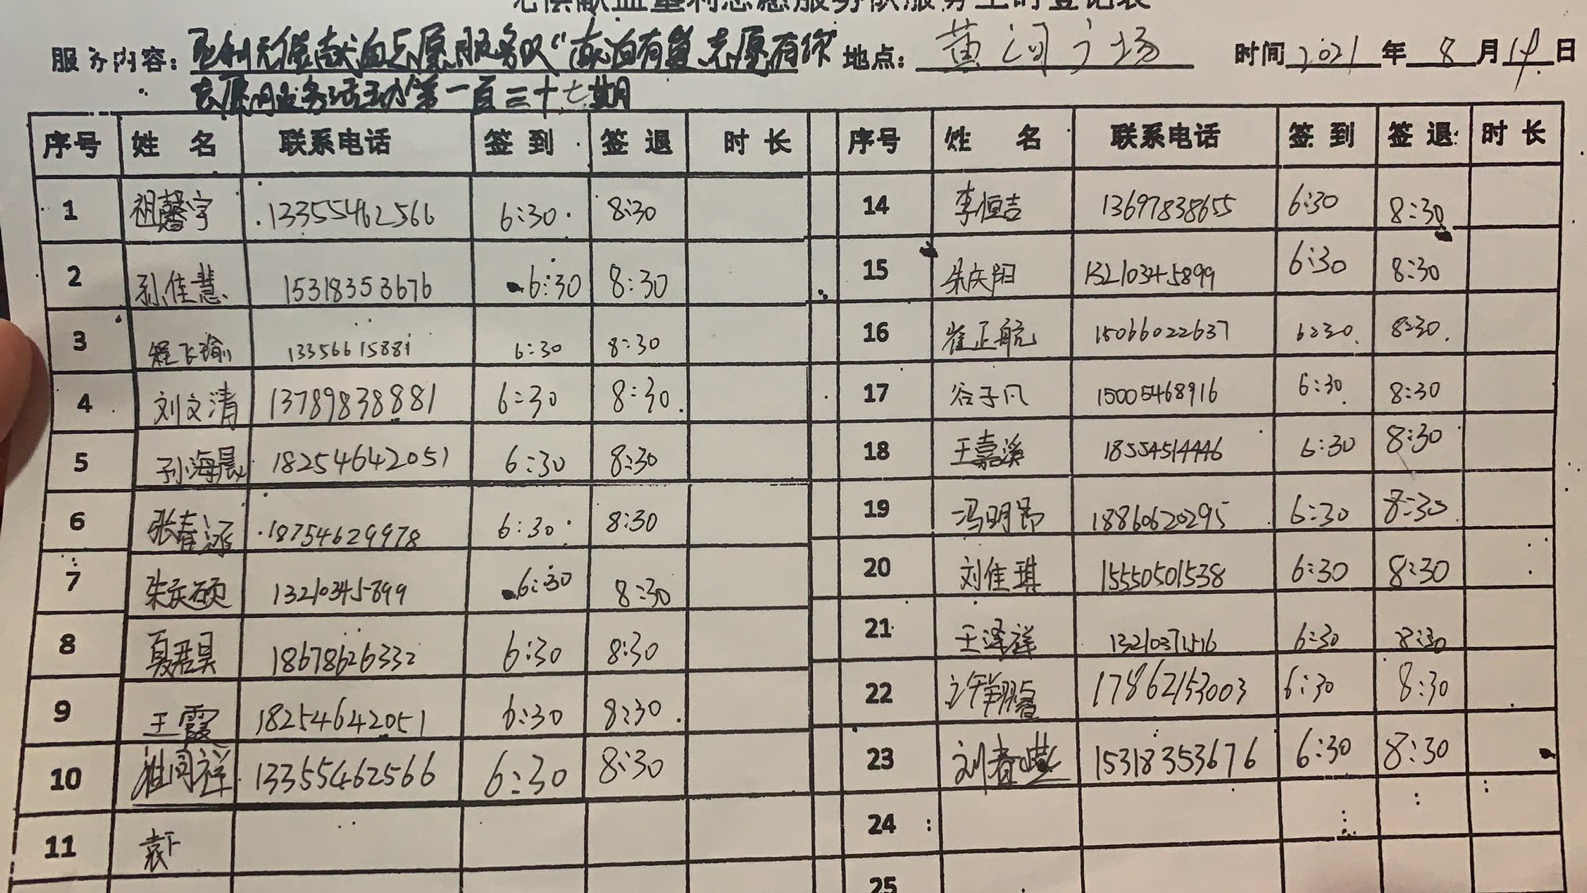 无偿献血垦利志愿服务队服务工时登记表
服务内容: 垦利无偿献血志愿服务队"献血有益 志愿有你 地点: 黄河广场 时间 2021 年 8 月 14 日
志愿服务活动"第一百三十七期
序号 姓 名 联系电话 签 到 签 退 时 长 序号 姓 名 联系电话 签 到 签 退 时 长
1 祖馨宇 13355462566 6:30 8:30 14 李恒吉 13697838655 6:30 8:30
2 孙佳慧 15318353676 6:30 8:30 15 朱庆阳 13210345899 6:30 8:30
3 程飞瑜 13356615881 6:30 8:30 16 崔正航 15066022637 6:30 8:30
4 刘文清 13789838881 6:30 8:30 17 谷子凡 15005468916 6:30 8:30
5 孙海晨 18254642051 6:30 8:30 18 王嘉溪 18554514446 6:30 8:30
6 张春 18754629978 6:30 8:30 19 冯明昂 18860620295 6:30 8:30
7 朱庆硕 13210345899 6:30 8:30 20 刘佳琪 15550501538 6:30 8:30
8 夏君昊 18678626332 6:30 8:30 21 王泽祥 6:30 8:30
9 王霞 18254642051 6:30 8:30 22 许翔睿 17862153003 6:30 8:30
10 祖同祥 13355462566 6:30 8:30 23 刘春 15318353676 6:30 8:30
11 24
25